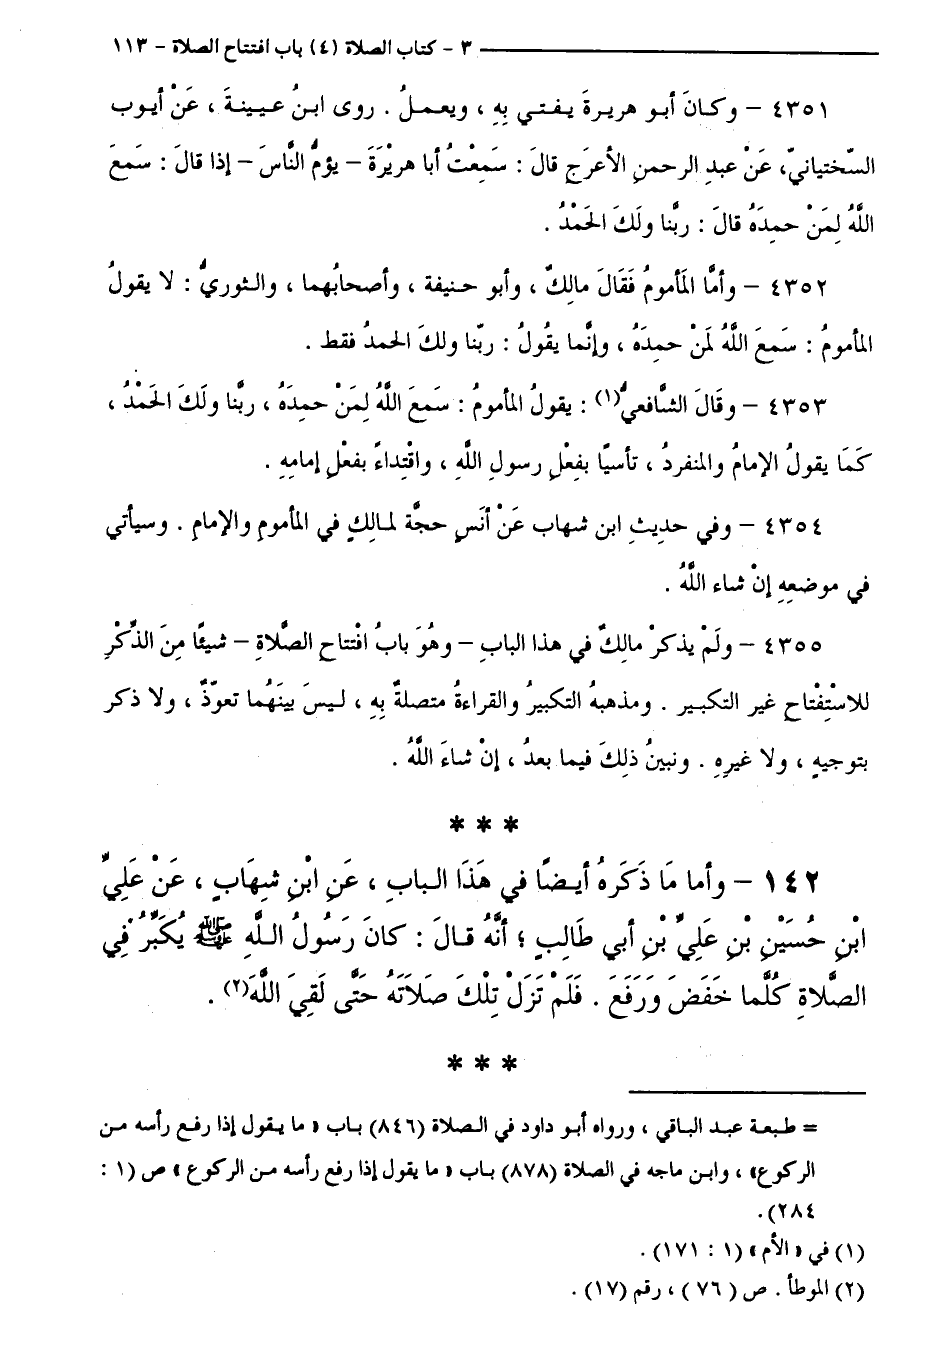 ٣ - كتاب الصلاة (٤) باب افتتاح الصلاة - ١١٣
٤٣٥١ - وكانَ أبو هريرةَ يفتي بِهِ ، ويعملُ . روى ابنُ عيينةَ ، عَنْ أيوب
السّختيانيّ، عَنْ عبدِ الرحمنِ الأعرَجِ قالَ : سَمِعْتُ أبا هريْرَةَ - يؤمُّ النَّاسَ - إذا قالَ : سَمعَ
اللَّهُ لِمَنْ حمِدَهُ قالَ : ربَّنا ولَكَ الحَمْدُ .
٤٣٥٢ - وأمَّا المَأمومُ فَقَالَ مالِكٌ ، وأبو حنيفة ، وأصحابُهما ، والثوريُّ : لا يقولُ
المأمومُ : سَمعَ اللَّهُ لمَنْ حمِدَهُ ، وإنَّما يقُولُ : ربّنا ولكَ الحمدُ فقط .
٤٣٥٣ - وقَالَ الشَّافعيُّ(١) : يقولُ المأمومُ : سَمَعَ اللَّهُ لِمَنْ حمِدَهُ ، ربَّنا ولَكَ الحَمْدُ ،
كَمَا يقولُ الإمامُ والمنفردُ ، تأسيًا بفِعْلِ رسولِ اللَّهِ ، واقْتِداءً بفعْلِ إمامِهِ .
٤٣٥٤ - وفي حديثِ ابن شهاب عَنْ أنَسٍ حجَّة لمالِكٍ في المأمومِ والإمامِ . وسيأتي
في موضعِهِ إنْ شاء اللَّهُ .
٤٣٥٥ - ولَمْ يذكرْ مالِكٌ في هذا البابِ - وهُوَ بابُ افْتتاحِ الصَّلاةِ - شيئًا مِنَ الذِّكْرِ
للاسْتِفْتاحِ غير التكبير . ومذهبهُ التكبيرُ والقراءةُ متصلةٌ بِهِ ، ليسَ بينَهُما تعوّذٌ ، ولا ذكر
بتوجيهٍ ، ولا غيرِهِ . ونبينُ ذلِكَ فيما بعدُ ، إنْ شاءَ اللَّهُ .
* * *
١٤٢ - وأما مَا ذَكَرَهُ أيضًا في هَذَا البابِ ، عَنِ ابْنِ شِهَابٍ ، عَنْ عَلِيِّ
ابْنِ حُسَيْنِ بْنِ عَلِيِّ بْنِ أبي طَالِبٍ ؛ أنَّهُ قالَ : كانَ رَسُولُ اللَّهِ ﷺ يُكَبِّرُ في
الصَّلاةِ كُلَّما خَفَضَ وَرَفَعَ . فَلَمْ تَزَلْ تِلْكَ صَلَاتَهُ حَتَّى لَقِيَ اللَّهَ(٢) .
* * *
= طبعة عبد الباقي ، ورواه أبو داود في الصلاة (٨٤٦) باب « ما يقول إذا رفع رأسه من
الركوع» ، وابن ماجه في الصلاة (٨٧٨) باب « ما يقول إذا رفع رأسه من الركوع » ص (١ :
٢٨٤).
(١) في « الأم » (١ : ١٧١) .
(٢) الموطأ . ص ( ٧٦ ) ، رقم (١٧) .